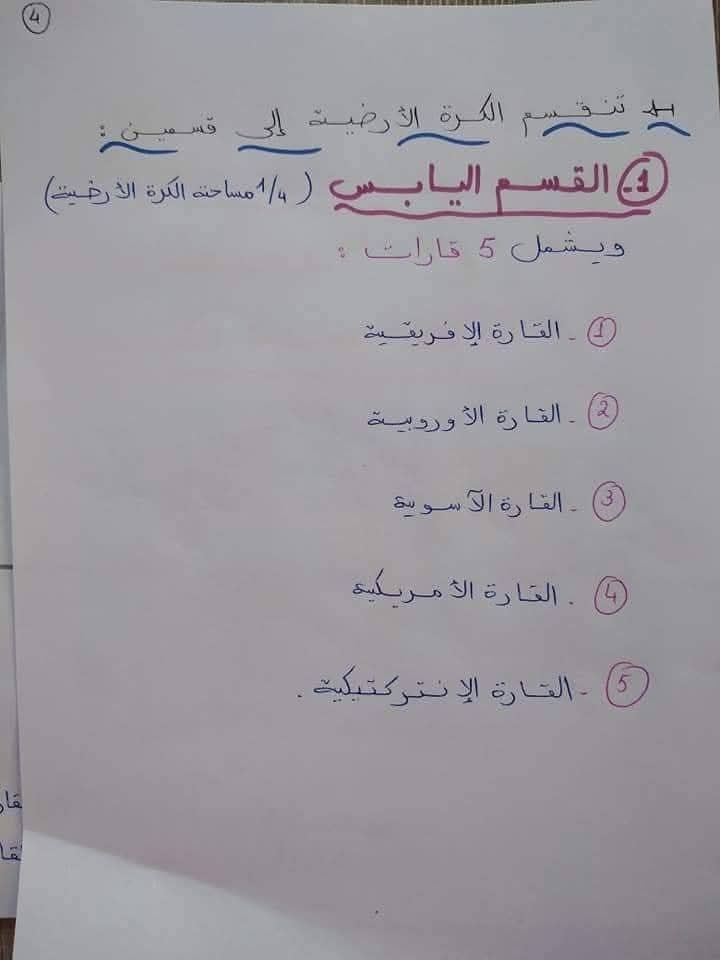 4
* تنقسم الكرة الأرضية إلى قسمين :
1. القسم اليابس (1/4 مساحته الكرة الأرضية)
ويشمل 5 قارات :
1 - القارة الإفريقية
2 - القارة الأوروبية
3 - القارة الآسوية
4 - القارة الأمريكية
5 - القارة الإنتركتيكية .